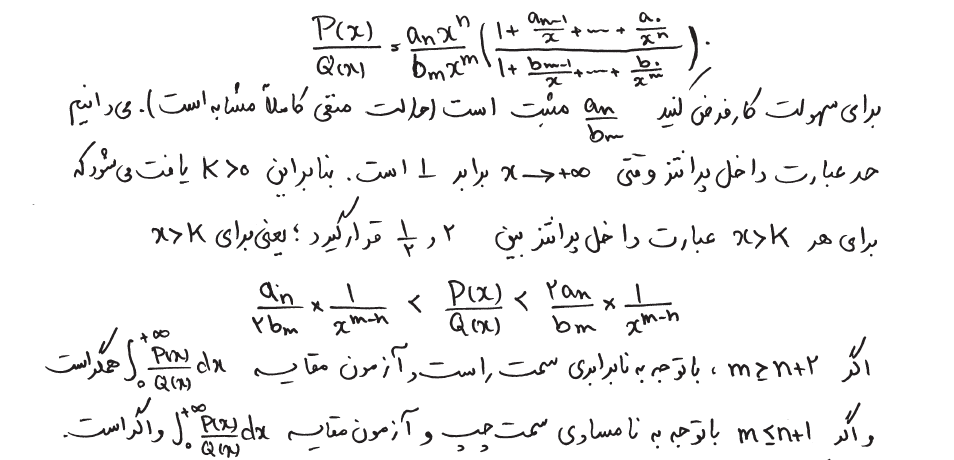 P(x)/Q(x) = aₙxⁿ/bₘxᵐ ( (1 + aₙ₋₁/x + ... + a₀/xⁿ) / (1 + bₘ₋₁/x + ... + b₀/xᵐ) ).
برای سهولت کار فرض کنید aₙ/bₘ مثبت است (حالت منفی کاملاً مشابه است). می‌دانیم
حد عبارت داخل پرانتز وقتی x → +∞ برابر ۱ است. بنابراین K > 0 یافت می‌شود که
برای هر x > K عبارت داخل پرانتز بین ۲ و ۱/۲ قرار گیرد؛ یعنی برای x > K
aₙ/۲bₘ × 1/xᵐ⁻ⁿ < P(x)/Q(x) < ۲aₙ/bₘ × 1/xᵐ⁻ⁿ
اگر m ≥ n+۲، با توجه به نابرابری سمت راست و آزمون مقایسه ∫₀^{+∞} P(x)/Q(x) dx همگراست
و اگر m ≤ n+1 با توجه به نامساوی سمت چپ و آزمون مقایسه ∫₀^{+∞} P(x)/Q(x) dx واگراست.